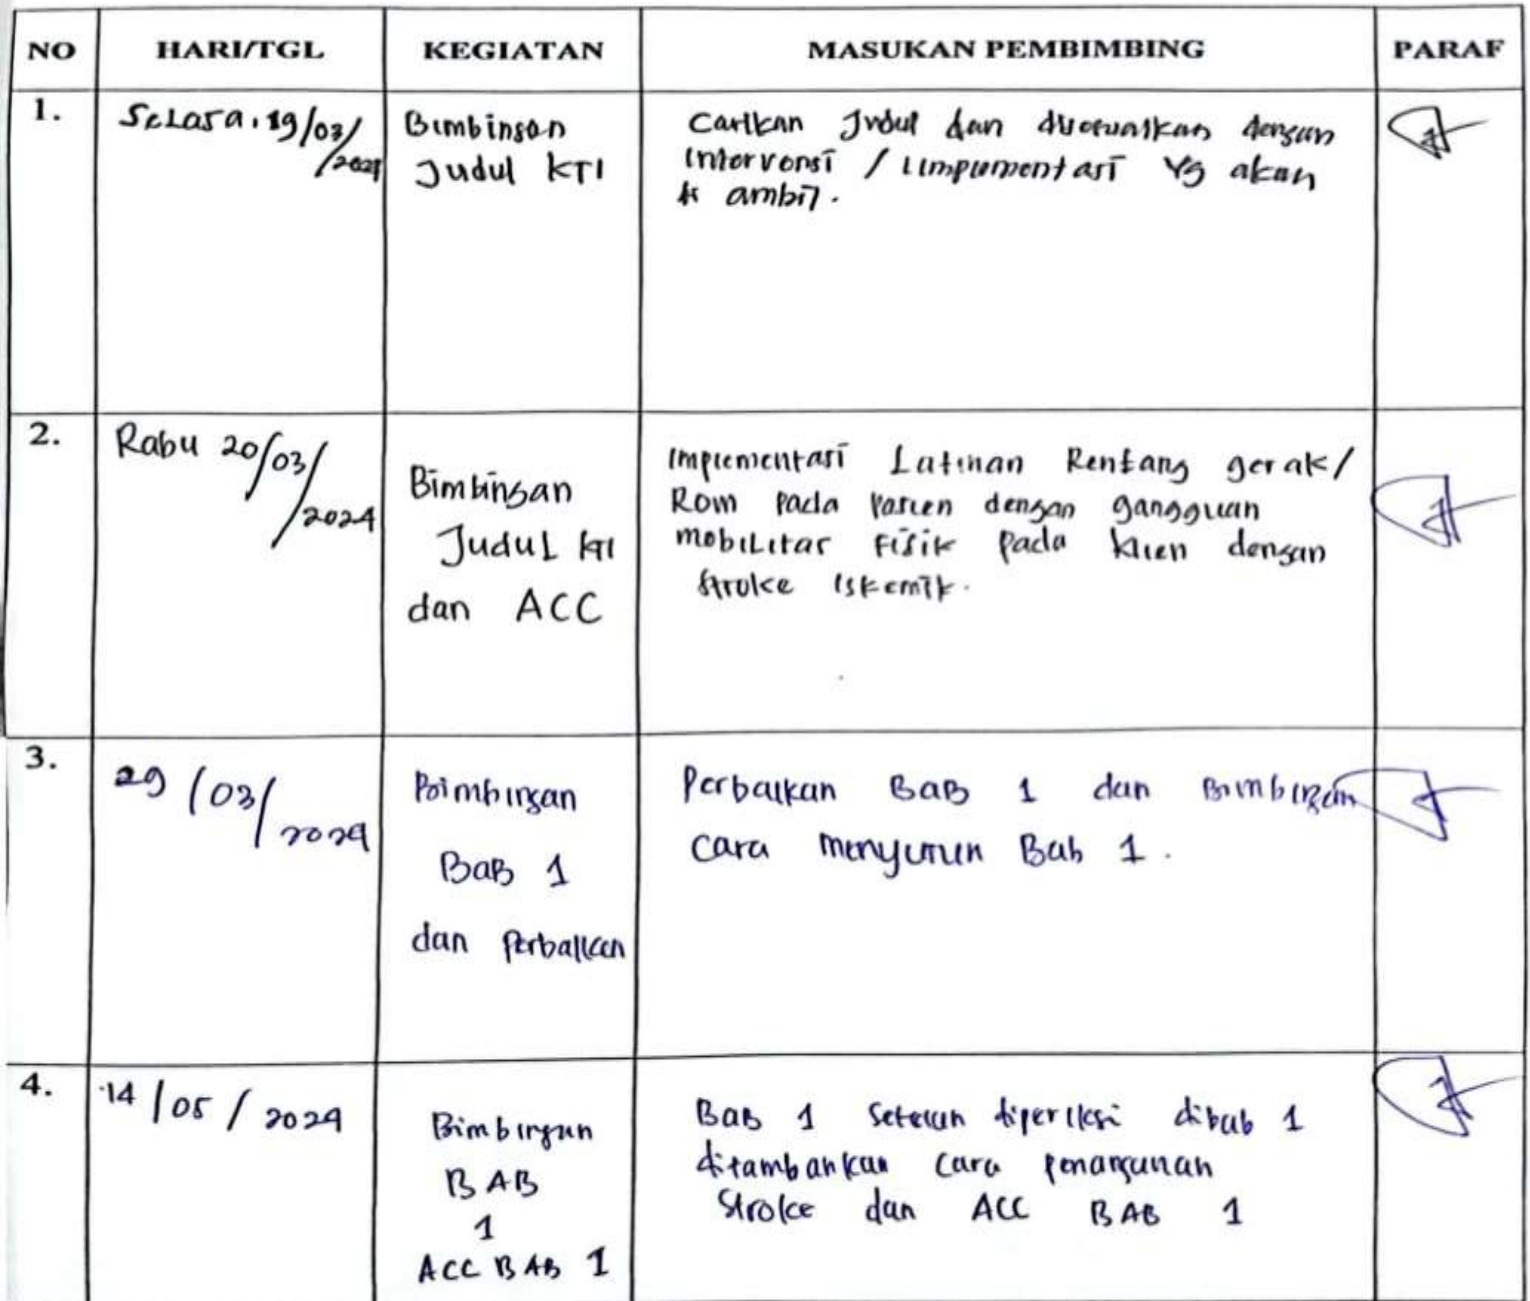 NO HARI/TGL KEGIATAN MASUKAN PEMBIMBING PARAF
1.
Selasa, 19/03/
/2024
Bimbingan
Judul KTI
Carikan Judul dan disesuaikan dengan
Intervensi / Implementasi yg akan
di ambil.
2.
Rabu 20/03/
/2024
Bimbingan
Judul KTI
dan ACC
Implementasi Latihan Rentang gerak/
Rom pada pasien dengan gangguan
mobilitas Fisik pada klien dengan
Stroke Iskemik.
3.
29/03/
2024
Bimbingan
BaB 1
dan Perbaikan
Perbaikan BaB 1 dan Bimbingan
cara menyusun Bab 1.
4.
14/05/2024
Bimbingan
BAB
1
ACC BAB 1
Bab 1 Setelah diperiksi dibab 1
ditambahkan cara penanganan
Stroke dan ACC BAB 1